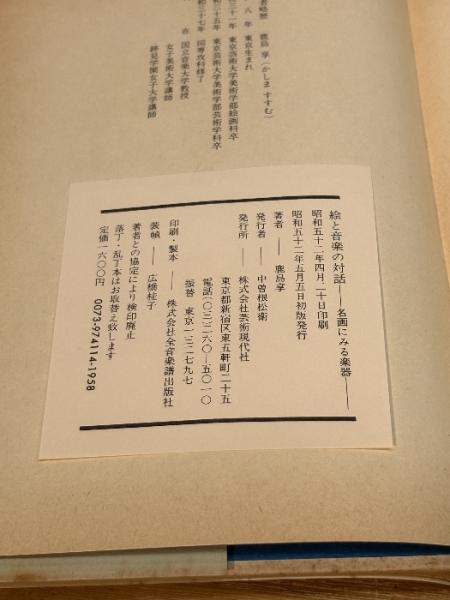 者略歴 鹿島 享(かしま すすむ)
八年 東京生まれ
三十一年 東京芸術大学美術学部絵画科卒
三十五年 東京芸術大学美術学部芸術学科卒
三十七年 同専攻科修了
在 国立音楽大学教授
女子美術大学講師
跡見学園女子大学講師
絵と音楽の対話――名画にみる楽器――
昭和五十二年四月二十日印刷
昭和五十二年五月五日初版発行
著者――鹿島享
発行者――中曽根松衛
発行所――株式会社芸術現代社
東京都新宿区東五軒町二十五
電話(〇三)二六〇―五〇一〇
振替 東京一/三二七九七
印刷・製本――株式会社全音楽譜出版社
装幀――広橋桂子
著者との協定により検印廃止
落丁・乱丁本はお取替え致します
定価一六〇〇円 0073-974114-1958